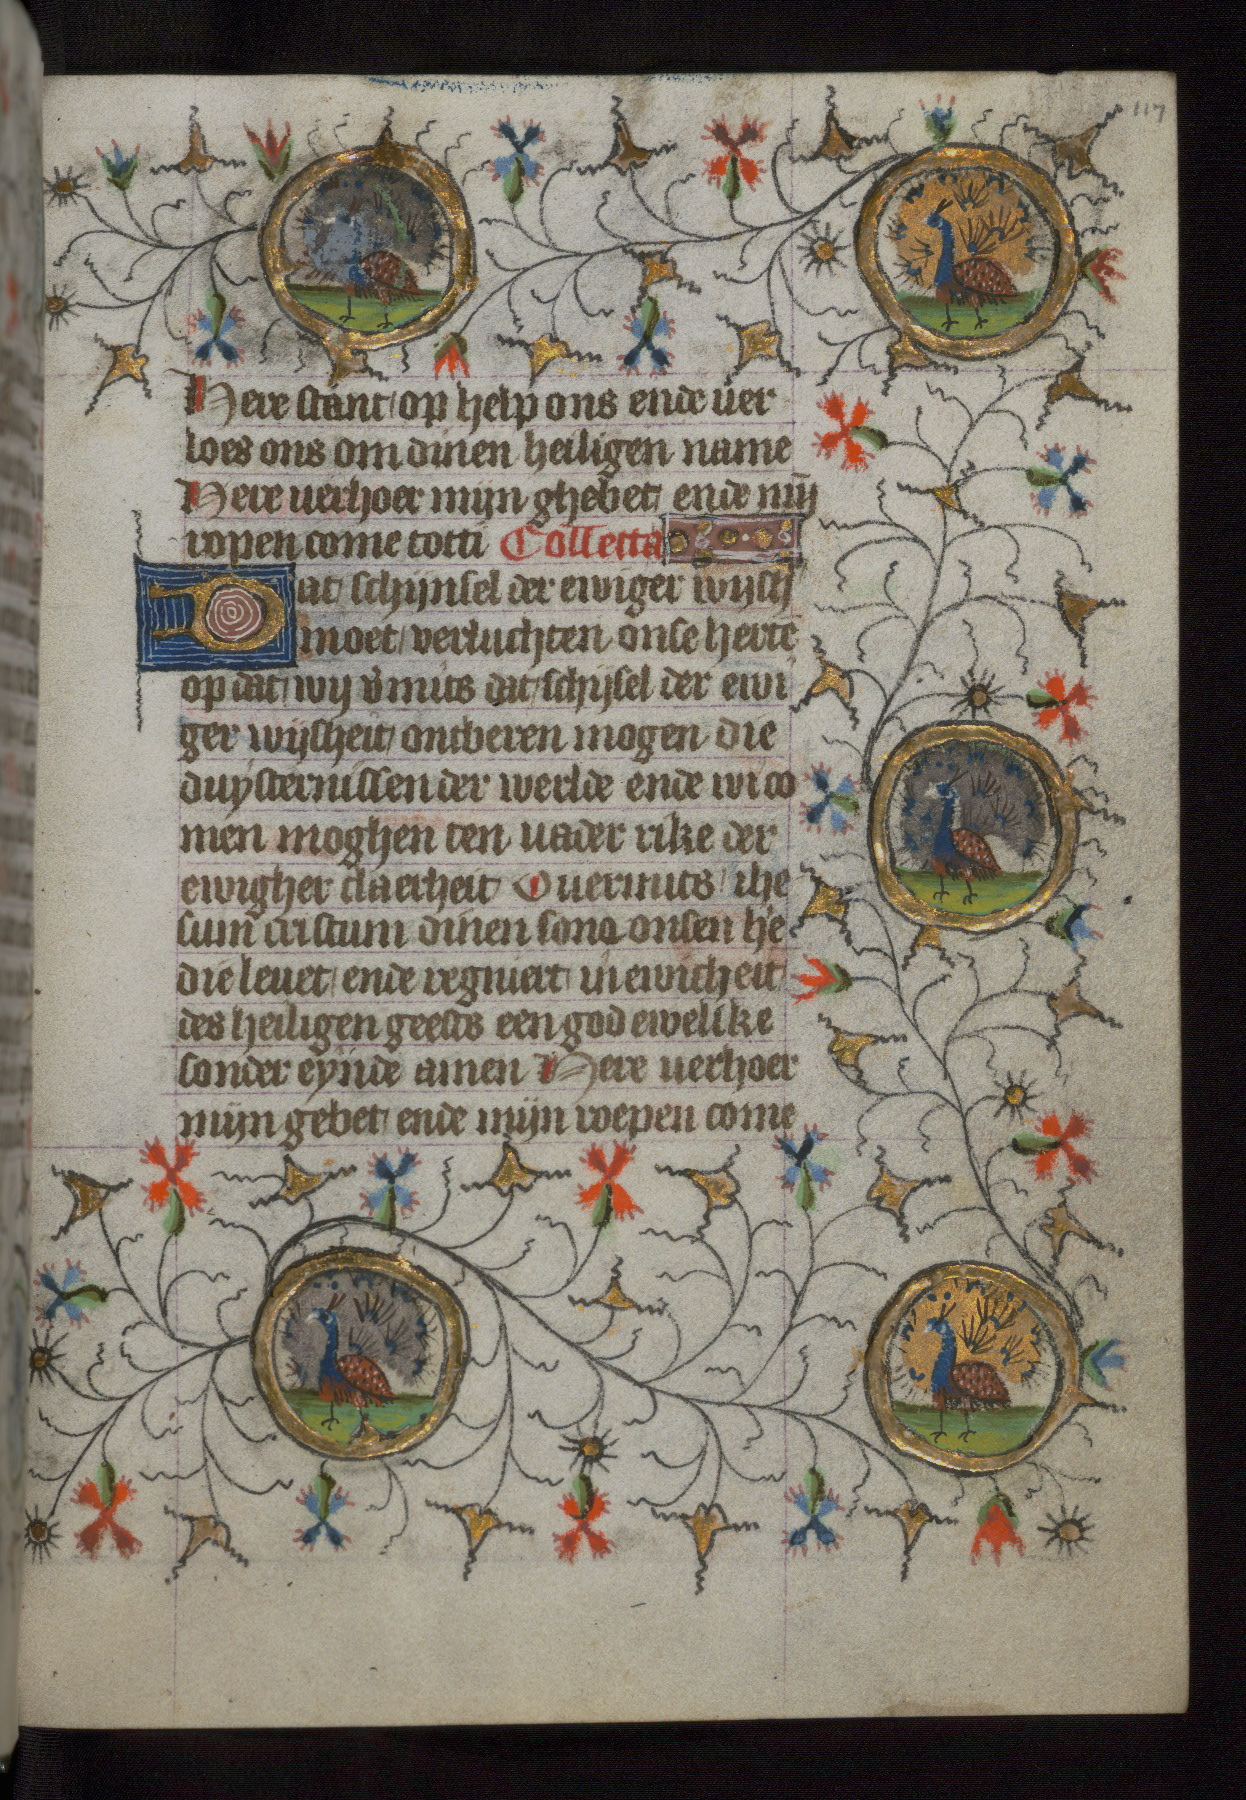 117
Here stant op help ons ende ver
loes ons om dinen heiligen name
Here verhoer mijn ghebet ende mijn
ropen come totti Collecta
Dat schijnsel der ewiger wijsh
moet verluchten onse herte
op dat wij vmits dat schijsel der ewi
ger wijsheit ontberen mogen die
duysternissen der werlde ende wi co
men moghen ten vader rike der
ewigher claerheit Ouermits ihe
sum cristum dinen sone onsen he
die leuet ende regniert in ewicheit
des heiligen geests een god ewelike
sonder eynde amen Here verhoer
mijn gebet ende mijn roepen come